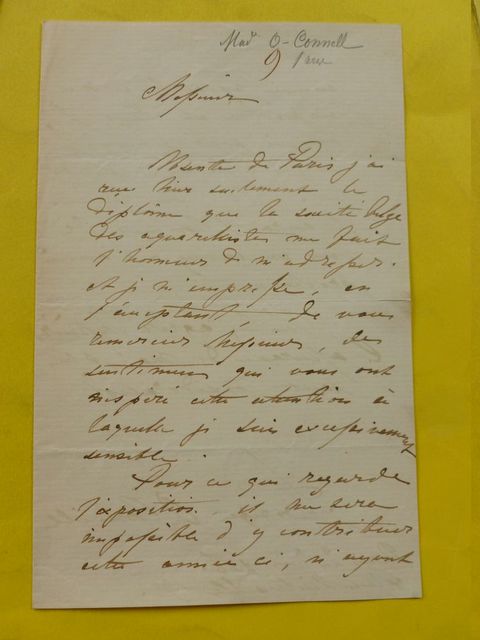 Made O-Connell
9 Paris
Messieurs
Absente de Paris j'ai
reçu hier seulement le
diplôme que la société belge
des aquarellistes me fait
l'honneur de m'adresser.
et je m'empresse, en
l'acceptant de vous
remercier Messieurs, des
sentimens qui vous ont
inspiré cette attention à
laquelle je suis excessivement
sensible.
Pour ce qui regarde
l'exposition, il me sera
impossible d'y contribuer
cette année ci, n'ayant